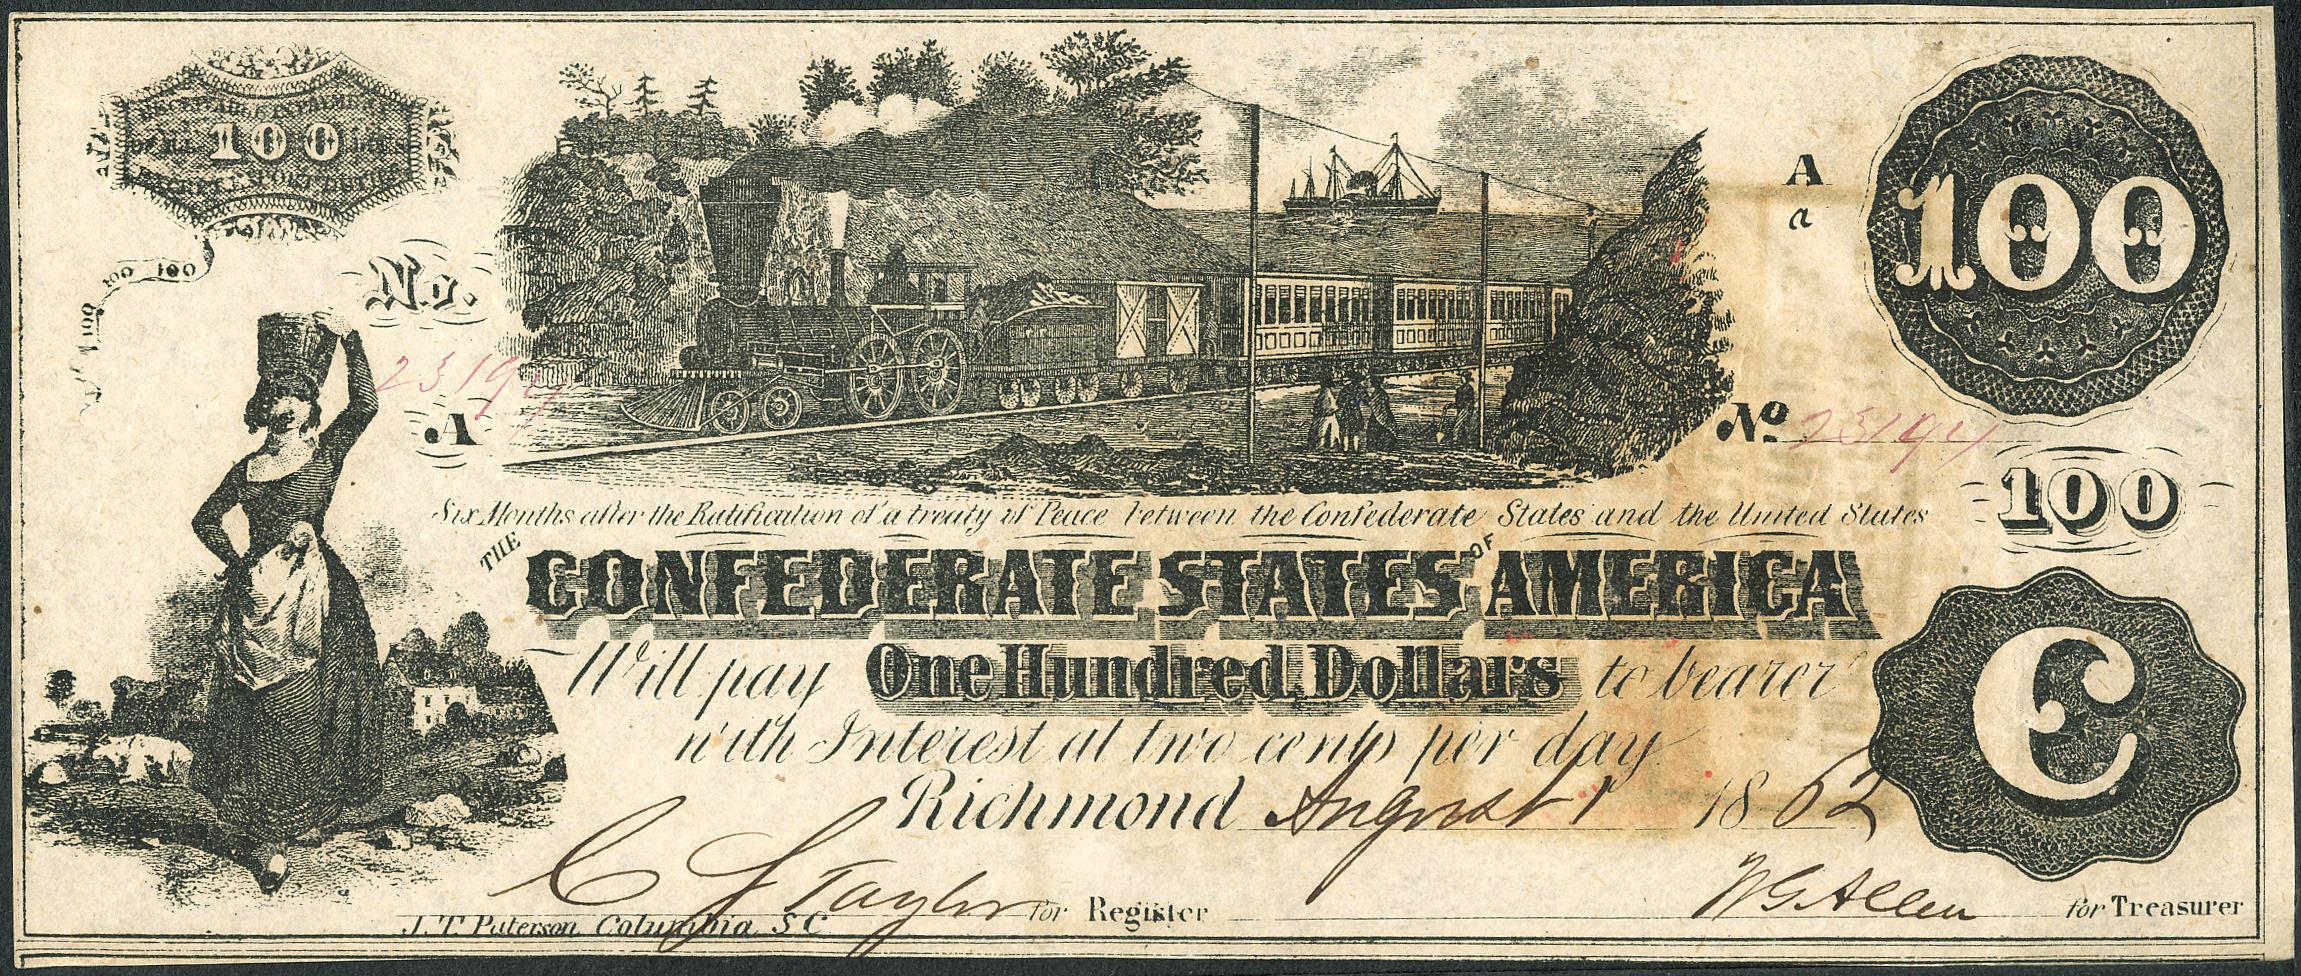 100
100 100 100
No.
23194
A
A
a
100
No 23194
100
Six Months after the Ratification of a treaty of Peace between the Confederate States and the United States
THE CONFEDERATE STATES OF AMERICA
Will pay One Hundred Dollars to bearer
with Interest at two cents per day
Richmond August 1 1862
C
C L Taylor for Register W G Allen for Treasurer
J. T. Paterson Columbia S C